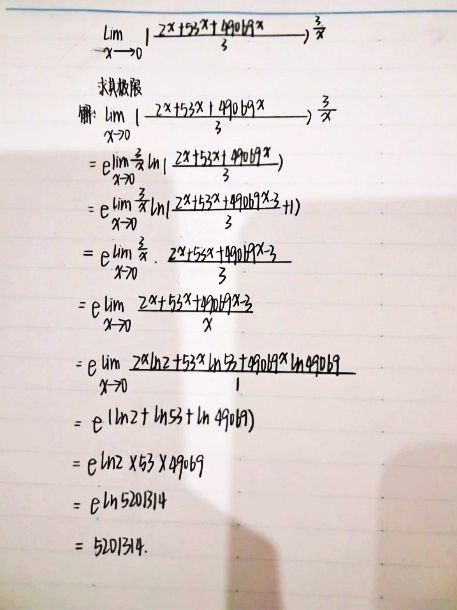 lim x→0 (2^x+53^x+49069^x / 3)^(3/x)
求其极限
解: lim x→0 (2^x+53^x+49069^x / 3)^(3/x)
= e lim x→0 3/x ln(2^x+53^x+49069^x / 3)
= e lim x→0 3/x ln(2^x+53^x+49069^x-3 / 3 +1)
= e lim x→0 3/x · 2^x+53^x+49069^x-3 / 3
= e lim x→0 2^x+53^x+49069^x-3 / x
= e lim x→0 2^x ln2+53^x ln53+49069^x ln49069 / 1
= e (ln2+ln53+ln49069)
= e ln2×53×49069
= e ln5201314
= 5201314.